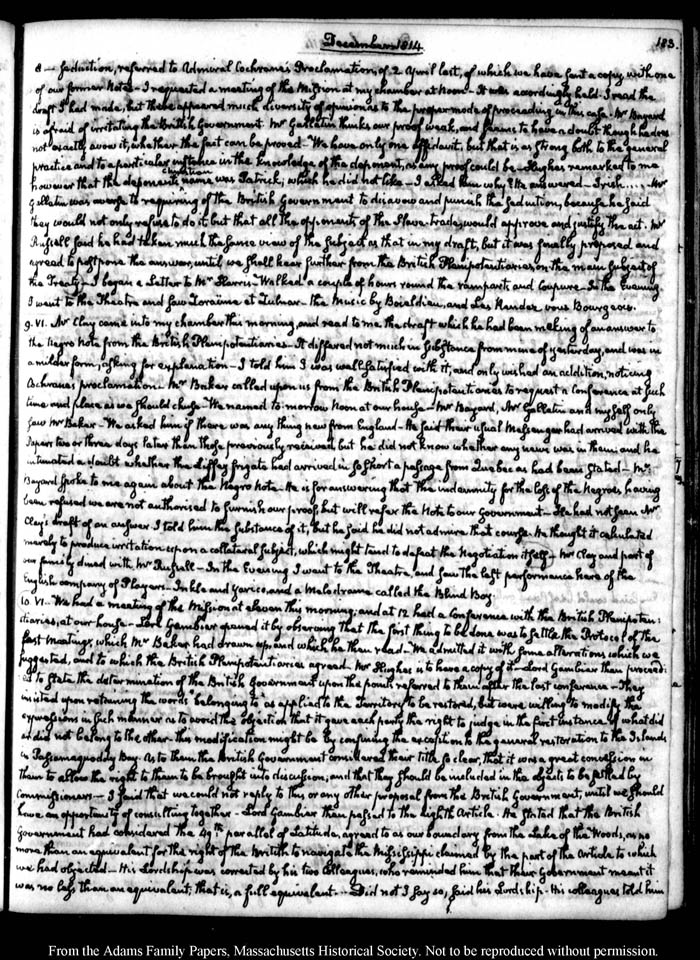 December 1814.
183.
8 — Seduction, referred to Admiral Cochrane's Proclamation, of 2 April last, of which we have sent a copy, with one
of our former Notes — I requested a meeting of the Mission at my chamber at Noon — It was accordingly held. I read the
draft I had made, but there appeared much diversity of opinion as to the proper mode of proceeding in this case. Mr Bayard
is afraid of irritating the British Government. Mr Gallatin thinks our proof weak, and seems to have a doubt though he does
not exactly avow it, whether the fact can be proved — We have only one affidavit, but that is as strong both to the general
practice and to a particular instance in the knowledge of the deponent, as any proof could be — Hughes remarked to me
however that the deponent's christian name was Patrick; which he did not like — I asked him why? He answered — Irish.... Mr
Gallatin was averse to requiring of the British Government to disavow and punish the Seduction, because he said
they would not only refuse to do it but that all the opponents of the Slave-trade, would approve and justify the act. Mr
Russell said he had taken much the same view of the subject as that in my draft, but it was finally proposed and
agreed to postpone the answer, until we shall hear further from the British Plenipotentiaries, on the main subject of
the Treaty — I began a Letter to Mr Harris — Walked a couple of hours round the ramparts and Coupure — In the Evening
I went to the Theatre and saw Loraime at Zulnar — the Music by Boieldieu, and Les Rendez vous Bourgeois.
9. VI. Mr Clay came into my chamber this morning, and read to me the draft which he had been making of an answer to
the Negro Note from the British Plenipotentiaries — It differed not much in substance from mine of yesterday, and was in
a milder form, asking for explanation — I told him I was well satisfied with it, and only wished an addition, noticing
Cochrane's proclamation — Mr Baker called upon us from the British Plenipotentiaries to request a Conference at such
time and place as we should chuse — We named to-morrow Noon at our house — Mr Bayard, Mr Gallatin and myself only
saw Mr Baker — We asked him if there was any thing new from England — He said their usual Messenger had arrived with the
Papers two or three days later than those previously received but he did not know whether any news was in them; and he
intimated a doubt whether the frigate had arrived in so short a passage from Quebec as had been stated — Mr
Bayard spoke to me again about the Negro Note. He is for answering that the indemnity for the loss of the Negroes having
been refused we are not authorised to furnish our proof, but will refer the Note to our Government — He had not seen Mr
Clay's draft of an answer. I told him the substance of it, but he said he did not admire that course. He thought it calculated
merely to produce irritation upon a collateral subject, which might tend to defeat the Negotiation itself — Mr Clay and part of
our family dined with Mr Russell — In the Evening I went to the Theatre, and saw the last performance here of the
English company of Players — Inkle and Yarico, and a Melodrama called the Blind Boy
10. VI. We had a meeting of the Mission at eleven this morning; and at 12 had a Conference with the British Plenipoten:
diaries, at our house — Lord Gambier opened it by observing that the first thing to be done was to settle the Protocol of the
last Meeting, which Mr Baker had drawn up, and which he then read — We admitted it with some alterations which we
suggested, and to which the British Plenipotentiaries agreed. Mr Hughes is to have a copy of it — Lord Gambier then proceed:
ed to state the determination of the British Government upon the points referred to them after the last conference — They
insisted upon retaining the words "belonging to" as applied to the Territory to be restored, but were willing to modify the
expressions in such manner as to avoid the objection that it gave each party the right to judge in the first instance of what did
or did not belong to the other. This modification might be by confining the exception to the general restoration to the Islands
in Passamaquoddy Bay. As to them the British Government considered their title so clear, that it was a great concession in
them to allow the right to them to be brought into discussion; and that they should be included in the objects to be settled by
Commissioners — I said that we could not reply to this or any other proposal from the British Government, until we should
have an opportunity of consulting together — Lord Gambier then passed to the eighth Article. He stated that the British
Government had considered the 49th parallel of Latitude, agreed to as our boundary from the Lake of the Woods, as no
more than an equivalent for the right of the British to navigate the Mississippi claimed by the part of the Article to which
we had objected — His Lordship was corrected by his two Colleagues, who reminded him that their Government meant it
was no less than an equivalent; that is, a full equivalent — Did not I say so, said his Lordship. His colleagues told him
From the Adams Family Papers, Massachusetts Historical Society. Not to be reproduced without permission.